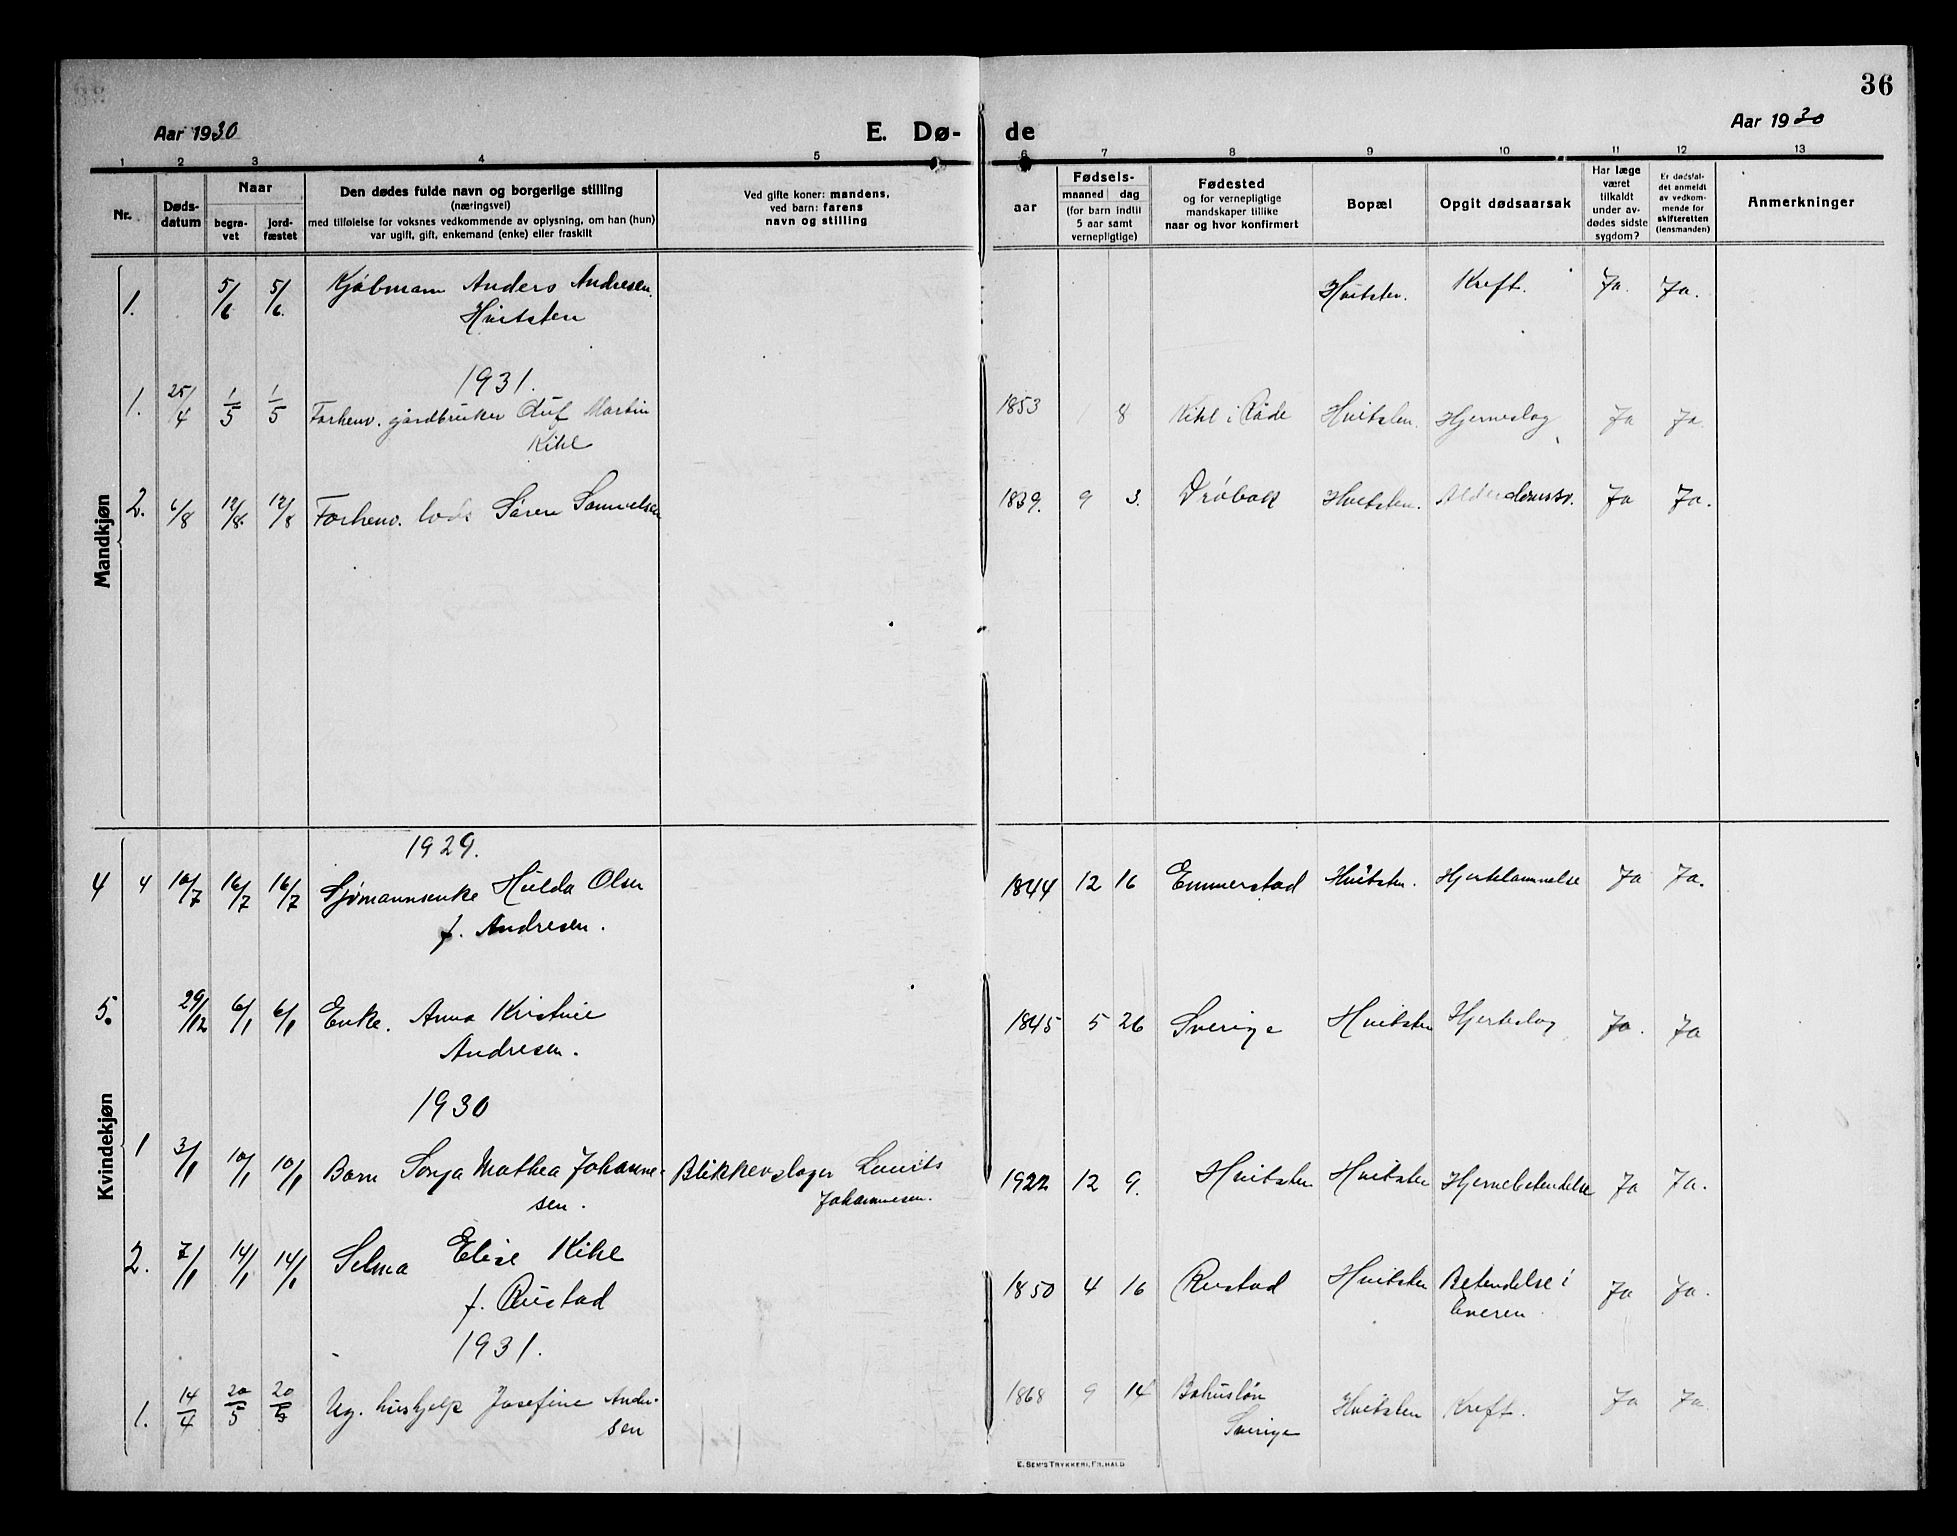 36
Aar 1930
E. Dø-
de
Aar 1930
1 2 3 4 5 6 7 8 9 10 11 12 13
Nr.
Døds-
datum
Naar
begra-
vet
jord-
fæstet
Den dødes fulde navn og borgerlige stilling
(næringsvei)
med tilføielse for voksnes vedkommende av oplysning, om han (hun)
var ugift, gift, enkemand (enke) eller fraskilt
Ved gifte koner: mandens,
ved barn: farens
navn og stilling
aar
Fødsels-
maaned dag
(for barn indtil
5 aar samt
vernepligtige)
Fødested
og for vernepligtige
mandskaper tillike
naar og hvor konfirmert
Bopæl
Opgit dødsaarsak
Har læge
været
tilkaldt
under av-
dødes sidste
sygdom?
Er dødsfal-
det anmeldt
av vedkom-
mende for
skifteretten
(lensmanden)
Anmerkninger
Mandkjøn
1. 5/6 5/6. Kjøbmann Anders Andresen. Hvitsten. Kreft. Ja. Ja.
Hvitsten
1931.
1. 25/4 1/5 1/5 Forhenv. gårdbruker Oluf Martin 1853 8 Kihl i Råde Hvitsten. Hjerneslag Ja Ja.
Kihl
2. 6/8 12/8. 12/8 Forhenv. lods Søren Samuelsen 1839. 9 3. Drøbak Hvitsten. Ja Ja.
Kvindekjøn
1929.
4 4 10/7 16/7 16/7 Sjømannsenke Hulda Olsen 1844 12 16 Emmerstad Hvitsten. Hjertelammelse Ja Ja.
f. Andresen.
5. 29/12 6/1 6/1 Enke. Anna Kristine 1845 5 26 Sverige Hvitsten Hjerteslag Ja. Ja
Andresen.
1930
1 3/1 10/1 10/1 Barn Sonja Mathea Johanne- Blikkenslager Laurits 1922 12 9. Hvitsten Hvitsten Hjernebetendelse Ja Ja.
sen. Johannesen.
2. 7/1 14/1 14/1 Selma Elise Kihl 1850 4 16 Rustad Hvitsten Betendelse i Ja Ja.
f. Rustad leveren.
1931.
1. 14/4 20/5 20/5 Ug. hushjelp Josefine Ander- 1868 9 14 Bohuslän Hvitsten Kreft. Ja Ja.
sen Sverige
E. SEM'S TRYKKERI, FR.HALD